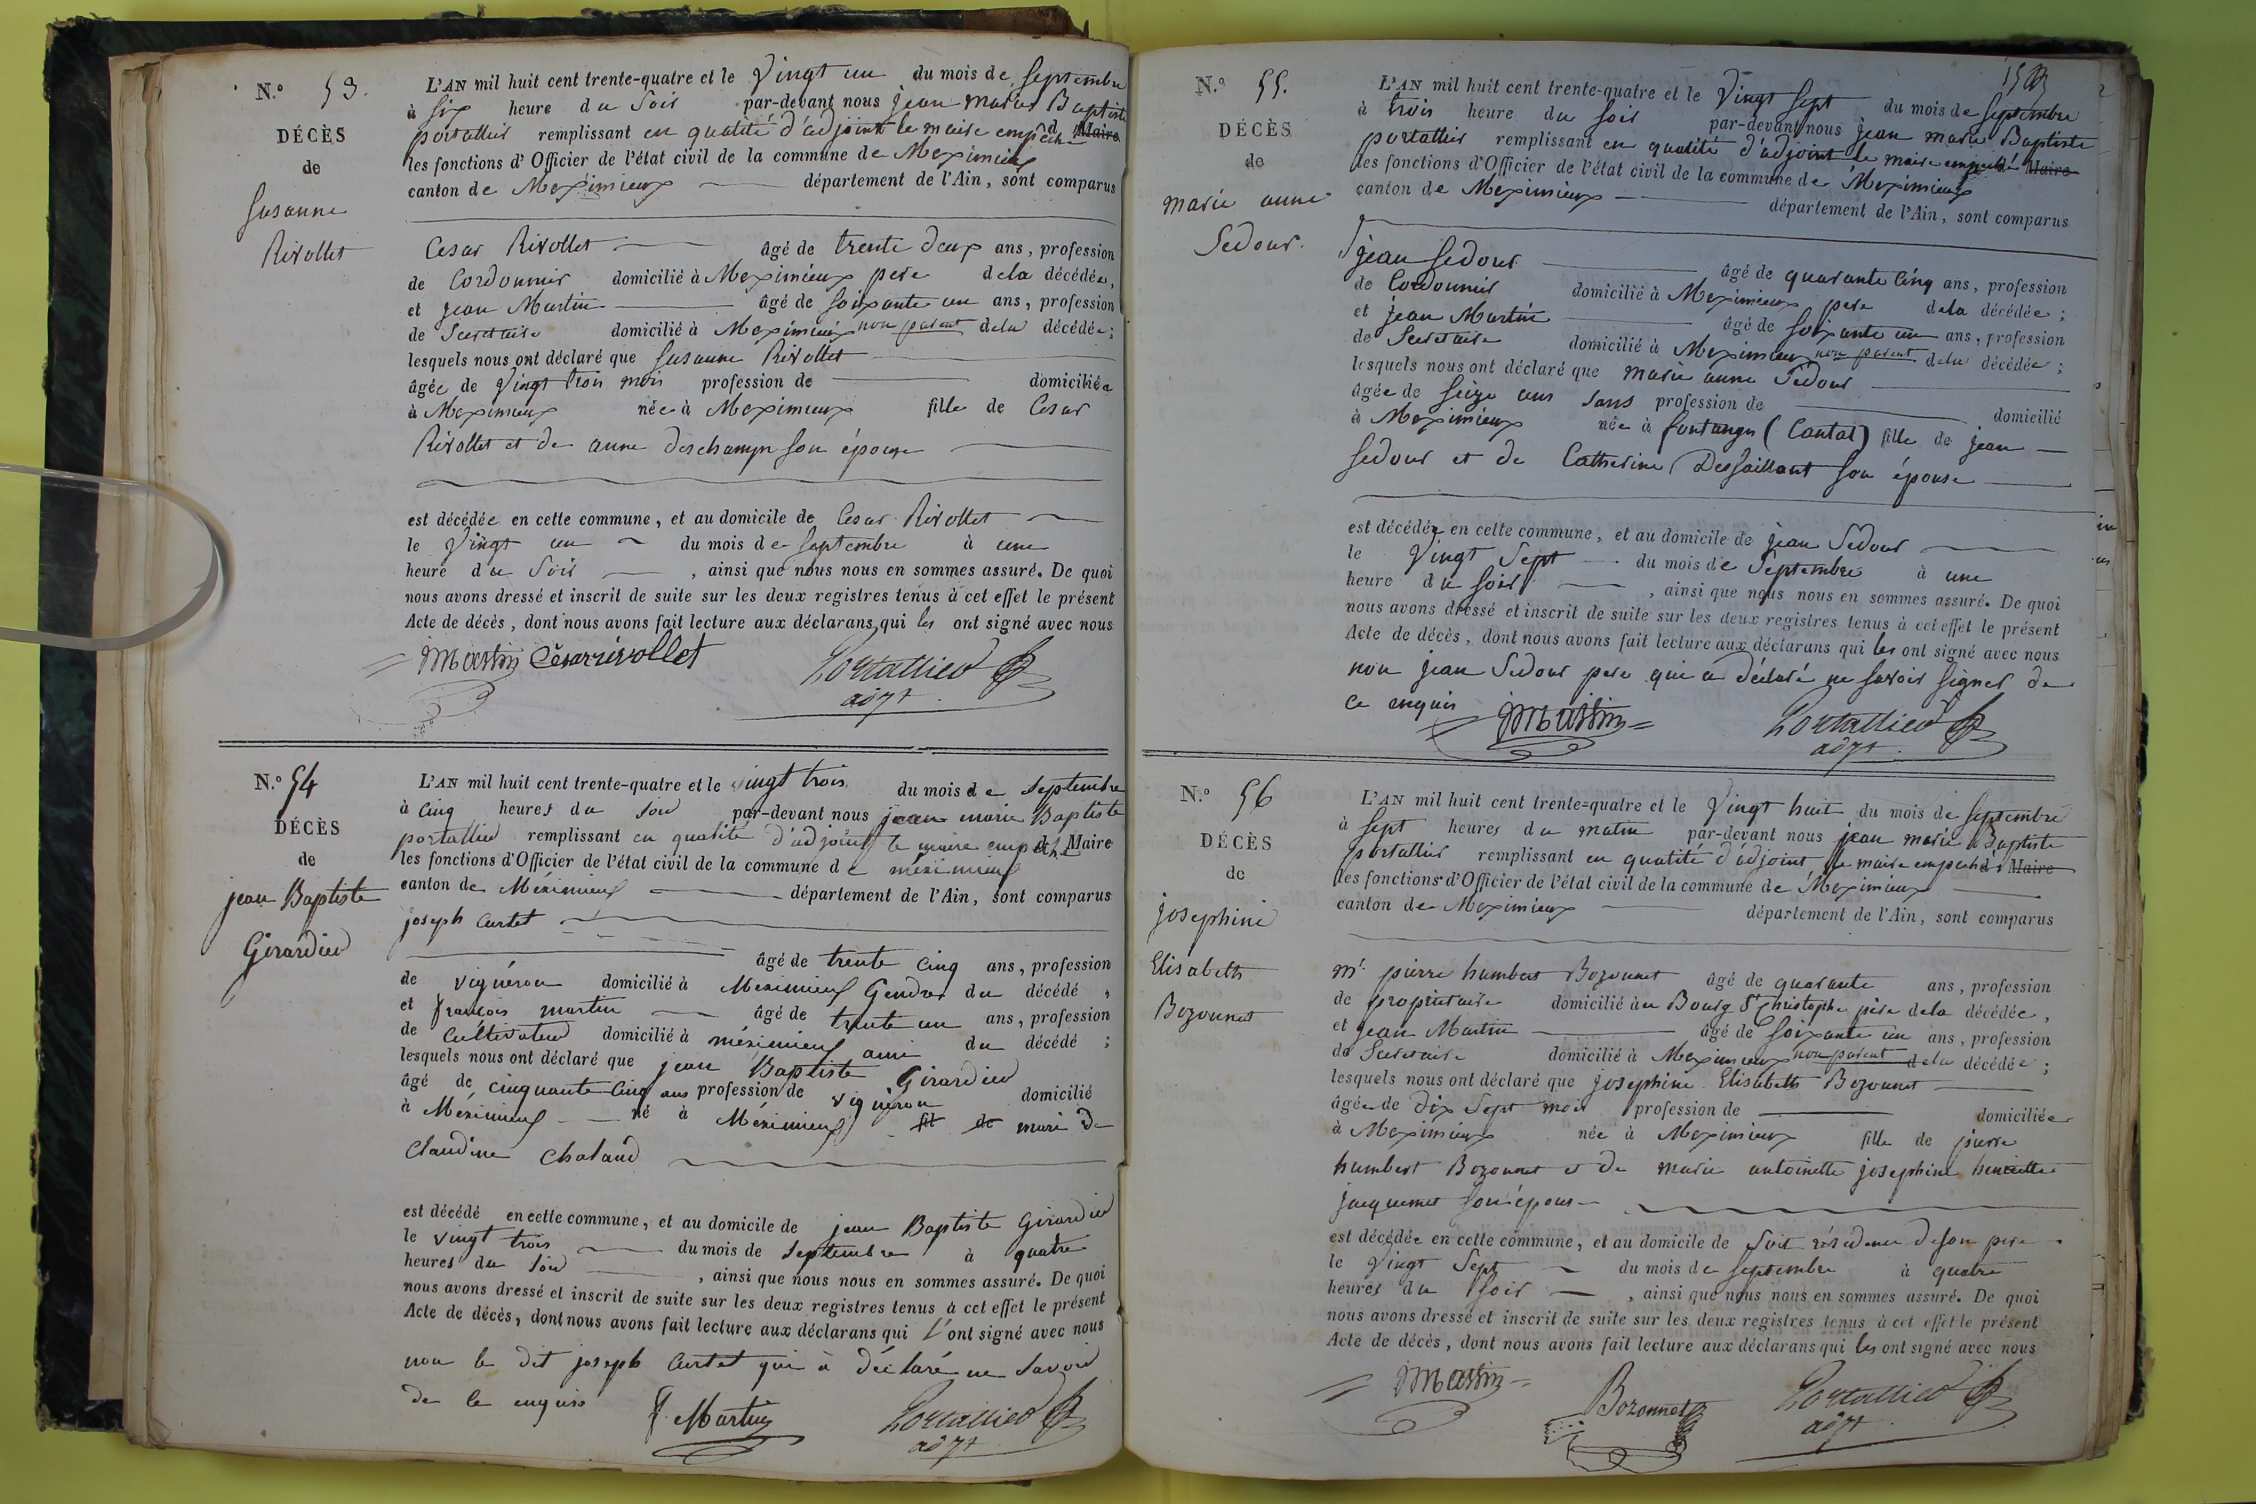 N.º 53.
DÉCÈS
de
Susanne
Rivollet
L'AN mil huit cent trente-quatre et le Vingt un du mois de Septembre
à Six heure du Soir par-devant nous jean marie Baptiste
portallier remplissant en qualité d'adjoint le maire empeché d Maire
les fonctions d'Officier de l'état civil de la commune de Meximieux
canton de Meximieux département de l'Ain, sont comparus
Cesar Rivollet âgé de trente deux ans, profession
de Cordonnier domicilié à Meximieux pere dela décédée,
et jean Martin âgé de soixante un ans, profession
de Secretaire domicilié à Meximieux non parent dela décédée;
lesquels nous ont déclaré que Susanne Rivollet
âgée de Vingt trois mois profession de domiciliée
à Meximieux née à Meximieux fille de Cesar
Rivollet et de anne deschamps son épouse
est décédée en cette commune, et au domicile de Cesar Rivollet
le Vingt un du mois de Septembre à une
heure du Soir, ainsi que nous nous en sommes assuré. De quoi
nous avons dressé et inscrit de suite sur les deux registres tenus à cet effet le présent
Acte de décès, dont nous avons fait lecture aux déclarans qui les ont signé avec nous
Martin Césarrivollet Portallier
adjt
N.º 54
DÉCÈS
de
jean Baptiste
Girardier
L'AN mil huit cent trente-quatre et le vingt trois du mois de Septembre
à cinq heures du soir par-devant nous jean marie Baptiste
portallier remplissant en qualité d'adjoint le maire empeché d Maire
les fonctions d'Officier de l'état civil de la commune de méximieux
canton de Méximieux département de l'Ain, sont comparus
joseph curtet
âgé de trente cinq ans, profession
de vigneron domicilié à Meximieux Gendre du décédé,
et françois martin âgé de trente un ans, profession
de Cultivateur domicilié à méximieux ami du décédé;
lesquels nous ont déclaré que jean Baptiste Girardier
âgé de cinquante cinq ans profession de vigneron domicilié
à Méximieux né à Méximieux fils de mari de
Claudine Chaland
est décédé en cette commune, et au domicile de jean Baptiste Girardier
le vingt trois du mois de Septembre à quatre
heures du soir, ainsi que nous nous en sommes assuré. De quoi
nous avons dressé et inscrit de suite sur les deux registres tenus à cet effet le présent
Acte de décès, dont nous avons fait lecture aux déclarans qui l'ont signé avec nous
non le dit joseph curtet qui à déclaré ne savoir
de ce enquis
f. Martin Portallier
adjt
N.º 55.
DÉCÈS
de
marie anne
Sedour.
L'AN mil huit cent trente-quatre et le Vingt Sept du mois de Septembre
à trois heure du soir par-devant nous jean marie Baptiste
portallier remplissant en qualité d'adjoint le maire empeché d Maire
les fonctions d'Officier de l'état civil de la commune de Meximieux
canton de Meximieux département de l'Ain, sont comparus
jean Sedour âgé de quarante cinq ans, profession
de Cordonnier domicilié à Meximieux pere dela décédée;
et jean Martin âgé de soixante un ans, profession
de Secretaire domicilié à Meximieux non parent dela décédée;
lesquels nous ont déclaré que marie anne Sedour
âgée de Seize ans sans profession de domicilié
à Meximieux née à fontanges (Cantal) fille de jean
Sedour et de Catherine Dessaillant son épouse
est décédée en cette commune, et au domicile de jean Sedour
le Vingt Sept du mois de Septembre à une
heure du soir, ainsi que nous nous en sommes assuré. De quoi
nous avons dressé et inscrit de suite sur les deux registres tenus à cet effet le présent
Acte de décès, dont nous avons fait lecture aux déclarans qui les ont signé avec nous
non jean Sedour pere qui a déclaré ne savoir signer de
ce enquis Martin Portallier
adjt
N.º 56
DÉCÈS
de
josephine
Elisabeth
Bozonnet
L'AN mil huit cent trente-quatre et le Vingt huit du mois de Septembre
à Sept heures du matin par-devant nous jean marie Baptiste
portallier remplissant en qualité d'adjoint le maire empeché d Maire
les fonctions d'Officier de l'état civil de la commune de Meximieux
canton de Meximieux département de l'Ain, sont comparus
mr. pierre humbert Bozonnet âgé de quarante ans, profession
de proprietaire domicilié au Bourg St Christophe père dela décédée,
et jean Martin âgé de soixante un ans, profession
de Secretaire domicilié à Meximieux non parent dela décédée;
lesquels nous ont déclaré que josephine Elisabeth Bozonnet
âgée de dix Sept mois profession de domiciliée
à Meximieux née à Meximieux fille de pierre
humbert Bozonnet et de marie antoinette josephine henriette
jacquemet son épouse
est décédée en cette commune, et au domicile de soit résidence de son pere
le Vingt Sept du mois de Septembre à quatre
heures du soir, ainsi que nous nous en sommes assuré. De quoi
nous avons dressé et inscrit de suite sur les deux registres tenus à cet effet le présent
Acte de décès, dont nous avons fait lecture aux déclarans qui les ont signé avec nous
Martin Bozonnet Portallier
adjt